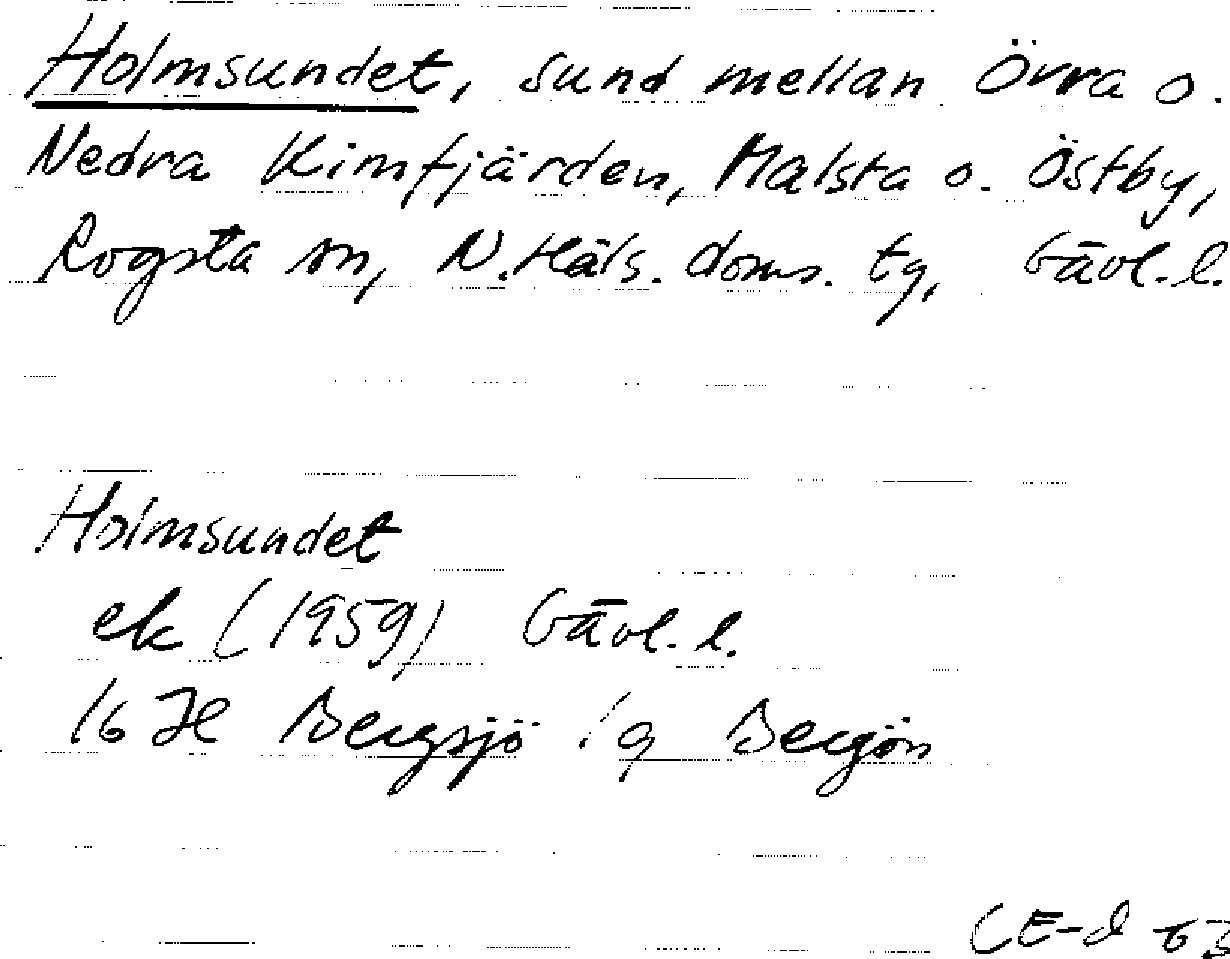 Holmsundet, sund mellan Övra o.
Nedra Kimfjärden, Malsta o. Östby,
Rogsta sn, N. Häls. doms. tg, Gävl. l.
Holmsundet
ek (1959) Gävl. l.
16 H Bergsjö / 9 Bergön
CE-d 63